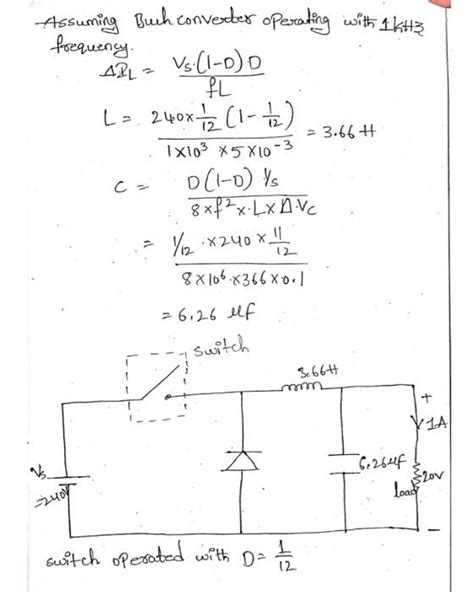 Assuming Buck converter operating with 1kHz
frequency.
ΔIL = Vs.(1-D)D / fL
L = 240×1/12 (1-1/12) / 1×10³ ×5×10⁻³ = 3.66 H
C = D(1-D) Vs / 8×f²×L×Δ.Vc
= 1/12 ×240×11/12 / 8×10⁶×366×0.1
= 6.26 μf
switch
3.66H
+
1A
Vs
=240V
6.26μf
20V
load
-
switch operated with D= 1/12